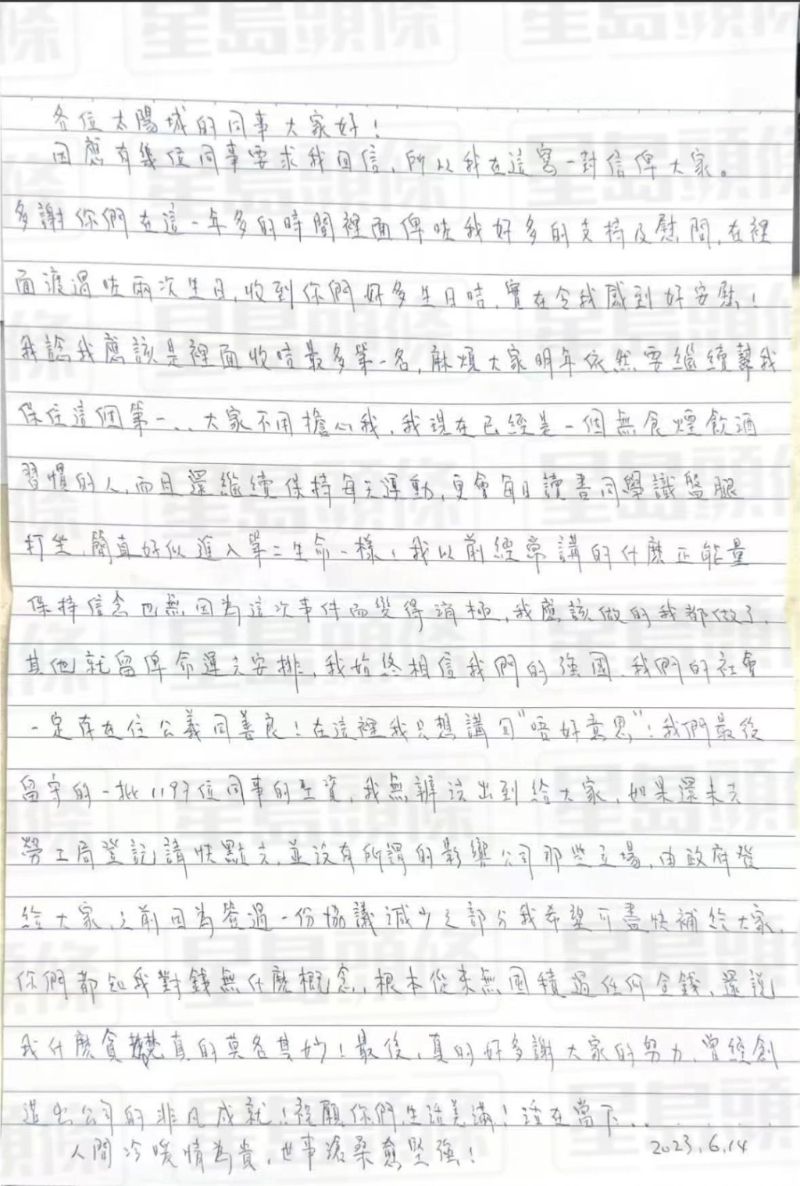 各位太陽城的同事大家好！
因應有幾位同事要求我回信，所以我在這寫一對信俾大家。
多謝你們在這一年多的時間裡面俾咗我好多的支持及慰問，在裡
面渡過咗兩次生日，收到你們好多生日咭，實在令我感到好安慰！
我諗我應該是裡面收咭最多第一名，麻煩大家明年依然要繼續幫我
保住這個第一..大家不用擔心我，我現在已經是一個無食煙飲酒
習慣的人，而且還繼續保持每天運動，更會每日讀書同學識盤腿
打坐，簡真好似進入第二生命一樣！我以前經常講的什麼正能量
保持信念也無因為這次事件而變得消極，我應該做的我都做了，
其他就留俾命運去安排，我始終相信我們的強國，我們的社會
一定存在住公義同善良！在這裡我只想講回"唔好意思"！我們最後
留守的一批1197位同事的工資，我無辦法出到給大家，如果還未去
勞工局登記請快點去，並沒有所謂的影響公司那些立場，由政府發
給大家，之前因為簽過一份協議減少之部分我希望可盡快補給大家，
你們都知我對錢無什麼概念，根本從來無囤積過任何金錢，還說
我什麼貪婪真的莫名其妙！最後，真的好多謝大家的努力，曾經創
造出公司的非凡成就！祝願你們生活美滿！活在當下......
人間冷暖情為貴，世事滄桑愈堅強！ 2023.6.14
星島頭條